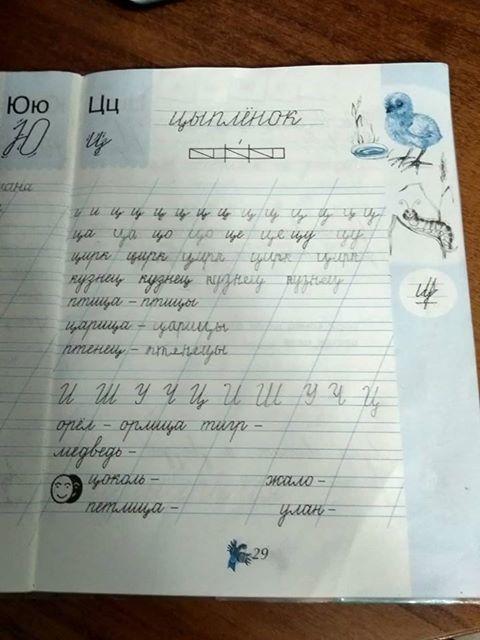 Юю
Ю
Цц
ц
цыплёнок
и и ц ц ц ц ц ц ц ц ц ц ц ц
ца ца цо цо це це цу цу
цирк цирк цирк цирк цирк
кузнец кузнец кузнец кузнец
птица – птицы
царица – царицы
птенец – птенецы
И Ш У Ч Ц И Ш У Ч Ц
орёл – орлица тигр –
медведь –
цоколь – жало –
петлица – улан –
Ц
29